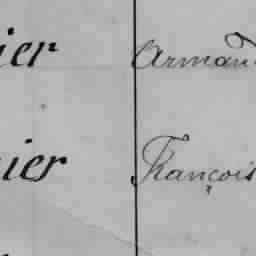 ier Arman
ier François